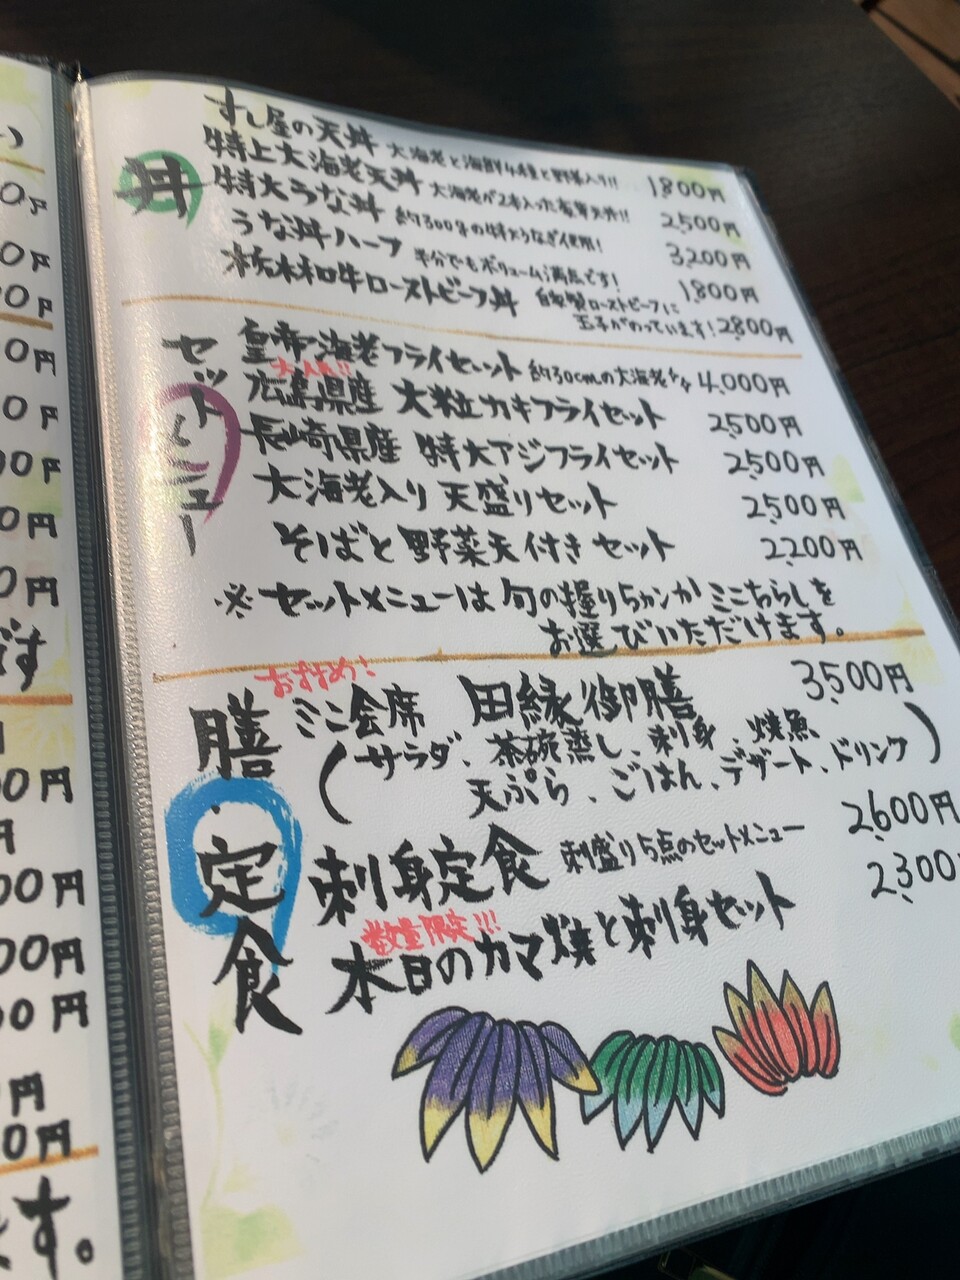 丼
すし屋の天丼 大海老と海鮮4種と野菜入り!! 1800円
特上大海老天丼 大海老が2本入った豪華天丼!! 2,500円
特大うな丼 約300gの特大うなぎ使用! 3,200円
うな丼ハーフ 半分でもボリューム満点です! 1,800円
栃木和牛ローストビーフ丼 自家製ローストビーフに
玉子がのっています! 2,800円
セットメニュー
皇帝海老フライセット 約30cmの大海老 4,000円
大人気!!
広島県産 大粒カキフライセット 2,500円
長崎県産 特大アジフライセット 2,500円
大海老入り 天盛りセット 2,500円
そばと野菜天付きセット 2,200円
※セットメニューは旬の握り5カンかミニちらしを
お選びいただけます。
膳・定食
おすすめ!
ミニ会席 田縁御膳 3,500円
(サラダ、茶碗蒸し、刺身、焼魚
天ぷら、ごはん、デザート、ドリンク)
刺身定食 刺盛り5点のセットメニュー 2,600円
数量限定!!!
本日のカマ焼と刺身セット 2,300